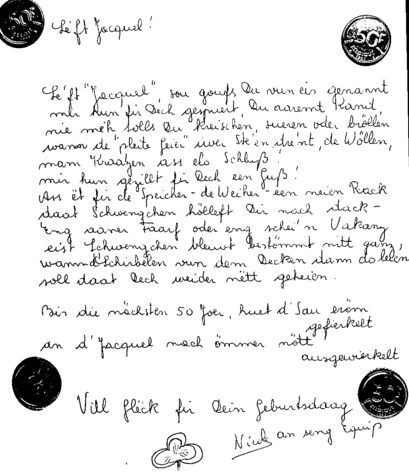 Léift Jacquel!
Léift "Jacquel", sou goufs Du vun eis genannt
mir hun fir Dech gespuert, Du aaremt Kand,
nie méh solls Du kreischen, sueren oder bröllen
wann de "pleite Geier" iwer Iech dréint, de Wöllen,
mam Kraatzen ass elo Schluß!
mir hun gezillt fir Dech een Guß!
Ass ët fir de Speicher - de Weiher - een neien Rack
daat Schwengchen hölleft Dir nach dack -
Eng aaner Faarf oder eng schei'n Vakanz
eist Schwengchen bleiwt bestëmmt nitt ganz,
wann d'Schirbelen vun dem Decken dann do leien
soll daat Dech weider nëtt geheien.
Bis die nächsten 50 Joer, huet d'Sau eröm
gefierkelt
an d'Jacquel nach ömmer nött
ausgewierkelt
Vill Gléck fir Dein Geburtsdaag
Nick an seng Equip
50F
50F
50